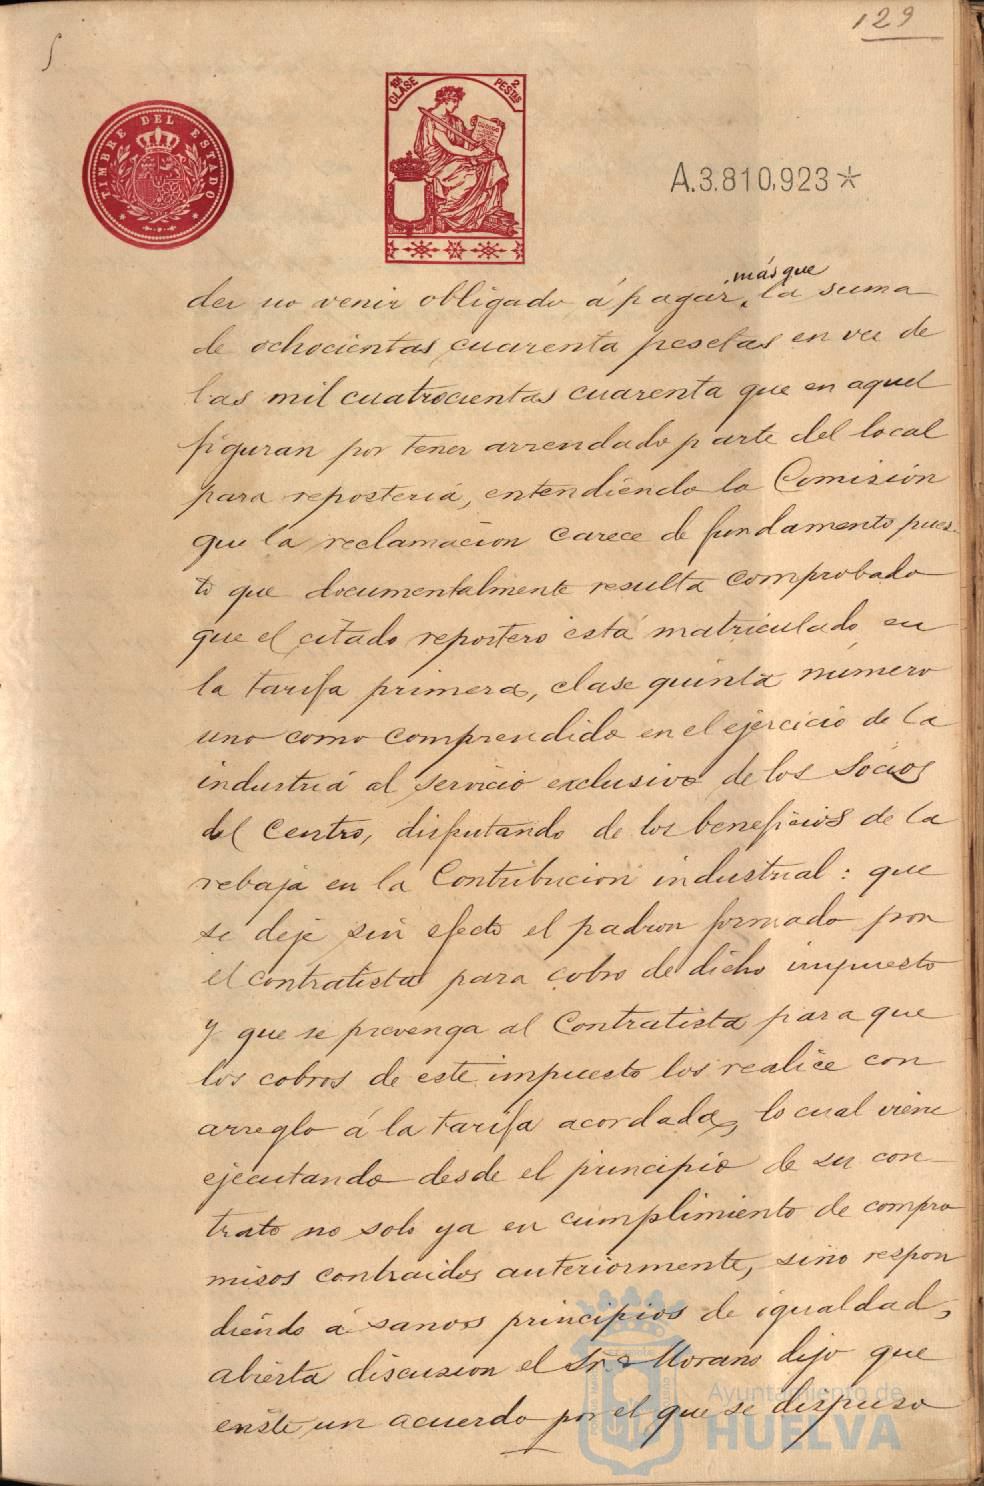 129
TIMBRE DEL ESTADO
10ª CLASE 2 PESTAS
A.3.810,923*
más que
der no venir obligado á pagar la suma
de ochocientas cuarenta pesetas en vez de
las mil cuatrocientas cuarenta que en aquel
figuran por tener arrendado parte del local
para reposteriá, entendiendo la Comisión
que la reclamacion carece de fundamento pues-
to que documentalmente resulta comprobado
que el citado repostero está matriculado en
la tarifa primera, clase quinta número
uno como comprendido en el ejercicio de la
industriá al servicio exclusivo de los Socios
del Centro, disputando de los beneficios de la
rebaja en la Contribucion industrial: que
se deje sin efecto el padron formado por
el contratista para cobro de dicho impuesto
y que se prevenga al Contratista para que
los cobros de este impuesto los realice con
arreglo á la tarifa acordada, lo cual viene
ejecutando desde el principio de su con-
trato no solo ya en cumplimiento de compro
misos contraidos anteriormente, sino respon
diendo á sanos principios de igualdad,
abierta discusion el Sr. Morano dijo que
existe un acuerdo por el que se dispuso
Ayuntamiento de
HUELVA